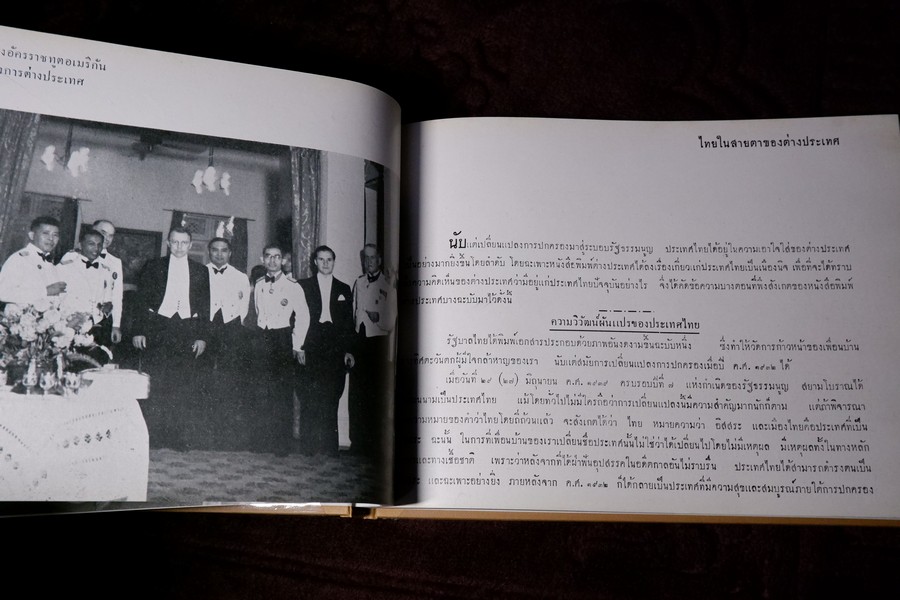 งอัครราชทูตอเมริกัน
การต่างประเทศ
ไทยในสายตาของต่างประเทศ
นับแต่เปลี่ยนแปลงการปกครองมาสู่ระบอบรัฐธรรมนูญ ประเทศไทยได้อยู่ในความเอาใจใส่ของต่างประเทศ
อย่างมากยิ่งขึ้นโดยลำดับ โดยฉะเพาะหนังสือพิมพ์ต่างประเทศได้ลงเรื่องเกี่ยวแก่ประเทศไทยเป็นเนืองนิจ เพื่อที่จะได้ทราบ
ความคิดเห็นของต่างประเทศว่ามีอยู่แก่ประเทศไทยปัจจุบันอย่างไร จึงได้คัดข้อความบางตอนที่พึงสังเกตของหนังสือพิมพ์
ประเทศบางฉะบับมาไว้ดังนี้
ความวิวัฒน์ผันแปรของประเทศไทย
รัฐบาลไทยได้พิมพ์เอกสารประกอบด้วยภาพอันงดงามขึ้นฉะบับหนึ่ง ซึ่งทำให้วัดการก้าวหน้าของเพื่อนบ้าน
ตะวันตกผู้มีใจกล้าหาญของเรา นับแต่สมัยการเปลี่ยนแปลงการปกครองเมื่อปี ค.ศ. ๑๙๓๒ ได้
เมื่อวันที่ ๒๙ (๒๗) มิถุนายน ค.ศ. ๑๙๓๙ ครบรอบปีที่ ๗ แห่งกำเนิดของรัฐธรรมนูญ สยามโบราณได้
นามเป็นประเทศไทย แม้โดยทั่วไปมิได้ถือว่าการเปลี่ยนแปลงนี้มีความสำคัญมากนักก็ตาม แต่ถ้าพิจารณา
ความหมายของคำว่าไทยโดยถี่ถ้วนแล้ว จะสังเกตได้ว่า ไทย หมายความว่า อิสสระ และเมืองไทยคือประเทศที่เป็น
ฉะนั้น ในการที่เพื่อนบ้านของเราเปลี่ยนชื่อประเทศนั้นไม่ใช่ว่าได้เปลี่ยนไปโดยไม่มีเหตุผล มีเหตุผลทั้งในทางหลัก
และทางเชื้อชาติ เพราะว่าหลังจากที่ได้ฝ่าฟันอุปสรรคในอดีตกาลอันไม่ราบรื่น ประเทศไทยได้สามารถดำรงตนเป็น
และฉะเพาะอย่างยิ่ง ภายหลังจาก ค.ศ. ๑๙๓๒ ก็ได้กลายเป็นประเทศที่มีความสุขและสมบูรณ์ภายใต้การปกครอง